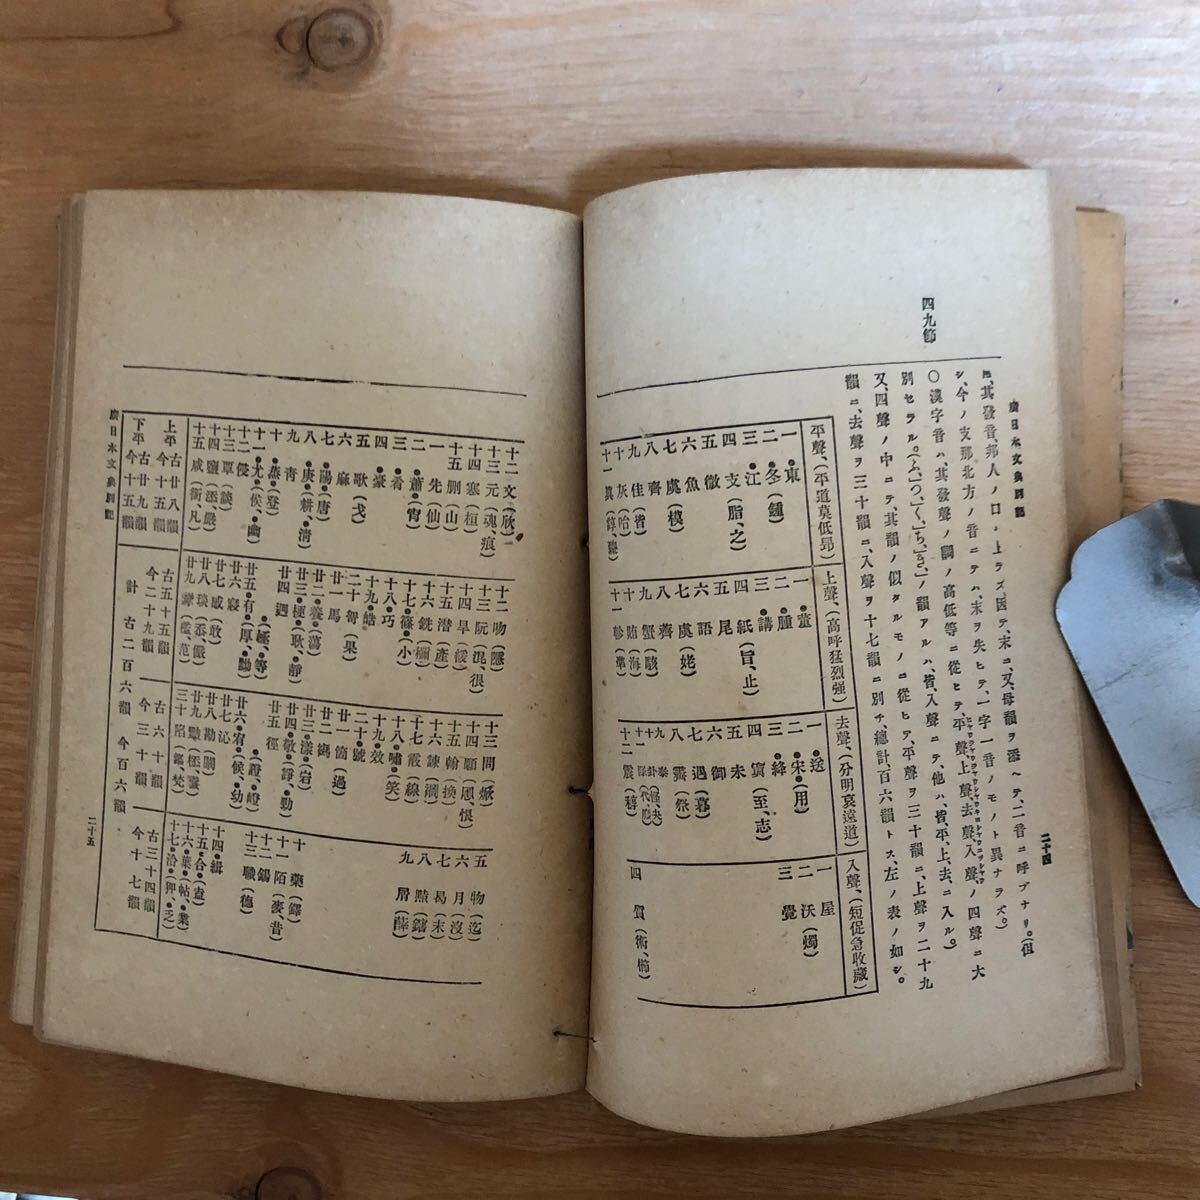 廣日本文典別記
二十四
四九節
應、其發音、邦人ノ口ニ上ラズ、因テ、末ニ、又、母韻ヲ添ヘテ、二音ニ呼ブナリ。(但
シ、今ノ支那北方ノ音ニテハ、末ヲ失ヒテ、一字一音ノモノト異ナラズ。)
〇漢字音ハ、其發聲ノ調ノ高低等ニ從ヒテ、平聲、上聲、去聲、入聲、ノ四聲ニ大
別セラル。(ふ、つ、く、ち、き、ノ韻アルハ、皆、入聲ニテ、他ハ、皆、平、上、去、ニ入ル。)
又、四聲ノ中ニテ、其韻ノ似タルモノニ從ヒテ、平聲ヲ三十韻ニ、上聲ヲ二十九
韻ニ、去聲ヲ三十韻ニ、入聲ヲ十七韻ニ別チ、總計百六韻トス、左ノ表ノ如シ。
平聲、(平道莫低昂)
一 東
二 冬(鍾)
三 江
四 支(脂、之)
五 微
六 魚
七 虞(模)
八 齊
九 佳(皆)
十 灰(咍)
十一 眞(諄、臻)
上聲、(高呼猛烈強)
一 董
二 腫
三 講
四 紙(旨、止)
五 尾
六 語
七 麌(姥)
八 薺
九 蟹(駭)
十 賄(海)
十一 軫(準)
去聲、(分明哀遠道)
一 送
二 宋(用)
三 絳
四 寘(至、志)
五 未
六 御
七 遇(暮)
八 霽(祭)
九 泰
十 卦(怪、夬)
十一 隊(代、廢)
十二 震(稕)
入聲、(短促急收藏)
一 屋
二 沃(燭)
三 覺
四 質(術、櫛)
十二 文(欣)
十三 元(魂、痕)
十四 寒(桓)
十五 刪(山)
一 先(仙)
二 蕭(宵)
三 肴
四 豪
五 歌(戈)
六 麻
七 陽(唐)
八 庚(耕、清)
九 靑
十 蒸(登)
十一 尤(侯、幽)
十二 侵
十三 覃(談)
十四 鹽(添、嚴)
十五 咸(銜、凡)
十二 吻(隱)
十三 阮(混、很)
十四 旱(緩)
十五 潸(產)
十六 銑(獮)
十七 篠(小)
十八 巧
十九 皓
二十 哿(果)
廿一 馬
廿二 養(蕩)
廿三 梗(耿、靜)
廿四 迥
(拯、等)
廿五 有(厚、黝)
廿六 寢
廿七 感(敢)
廿八 琰(忝、儼)
廿九 豏(檻、范)
十三 問(焮)
十四 願(慁、恨)
十五 翰(換)
十六 諫(澗)
十七 霰(線)
十八 嘯(笑)
十九 效
二十 號
廿一 箇(過)
廿二 禡
廿三 漾(宕)
廿四 敬(諍、勁)
廿五 徑
(證、嶝)
廿六 宥(候、幼)
廿七 沁
廿八 勘(闞)
廿九 豔(㮇、釅)
三十 陷(鑑、梵)
五 物(迄)
六 月(沒)
七 曷(末)
八 黠(鎋)
九 屑(薛)
十 藥(鐸)
十一 陌(麥、昔)
十二 錫
十三 職(德)
十四 緝
十五 合(盍)
十六 葉(帖、業)
十七 洽(狎、乏)
上平 古廿八韻 今十五韻
下平 古廿九韻 今十五韻
古五十五韻 今二十九韻
古六十韻 今三十韻
古三十四韻 今十七韻
計 古二百六韻 今百六韻
廣日本文典別記
二十五